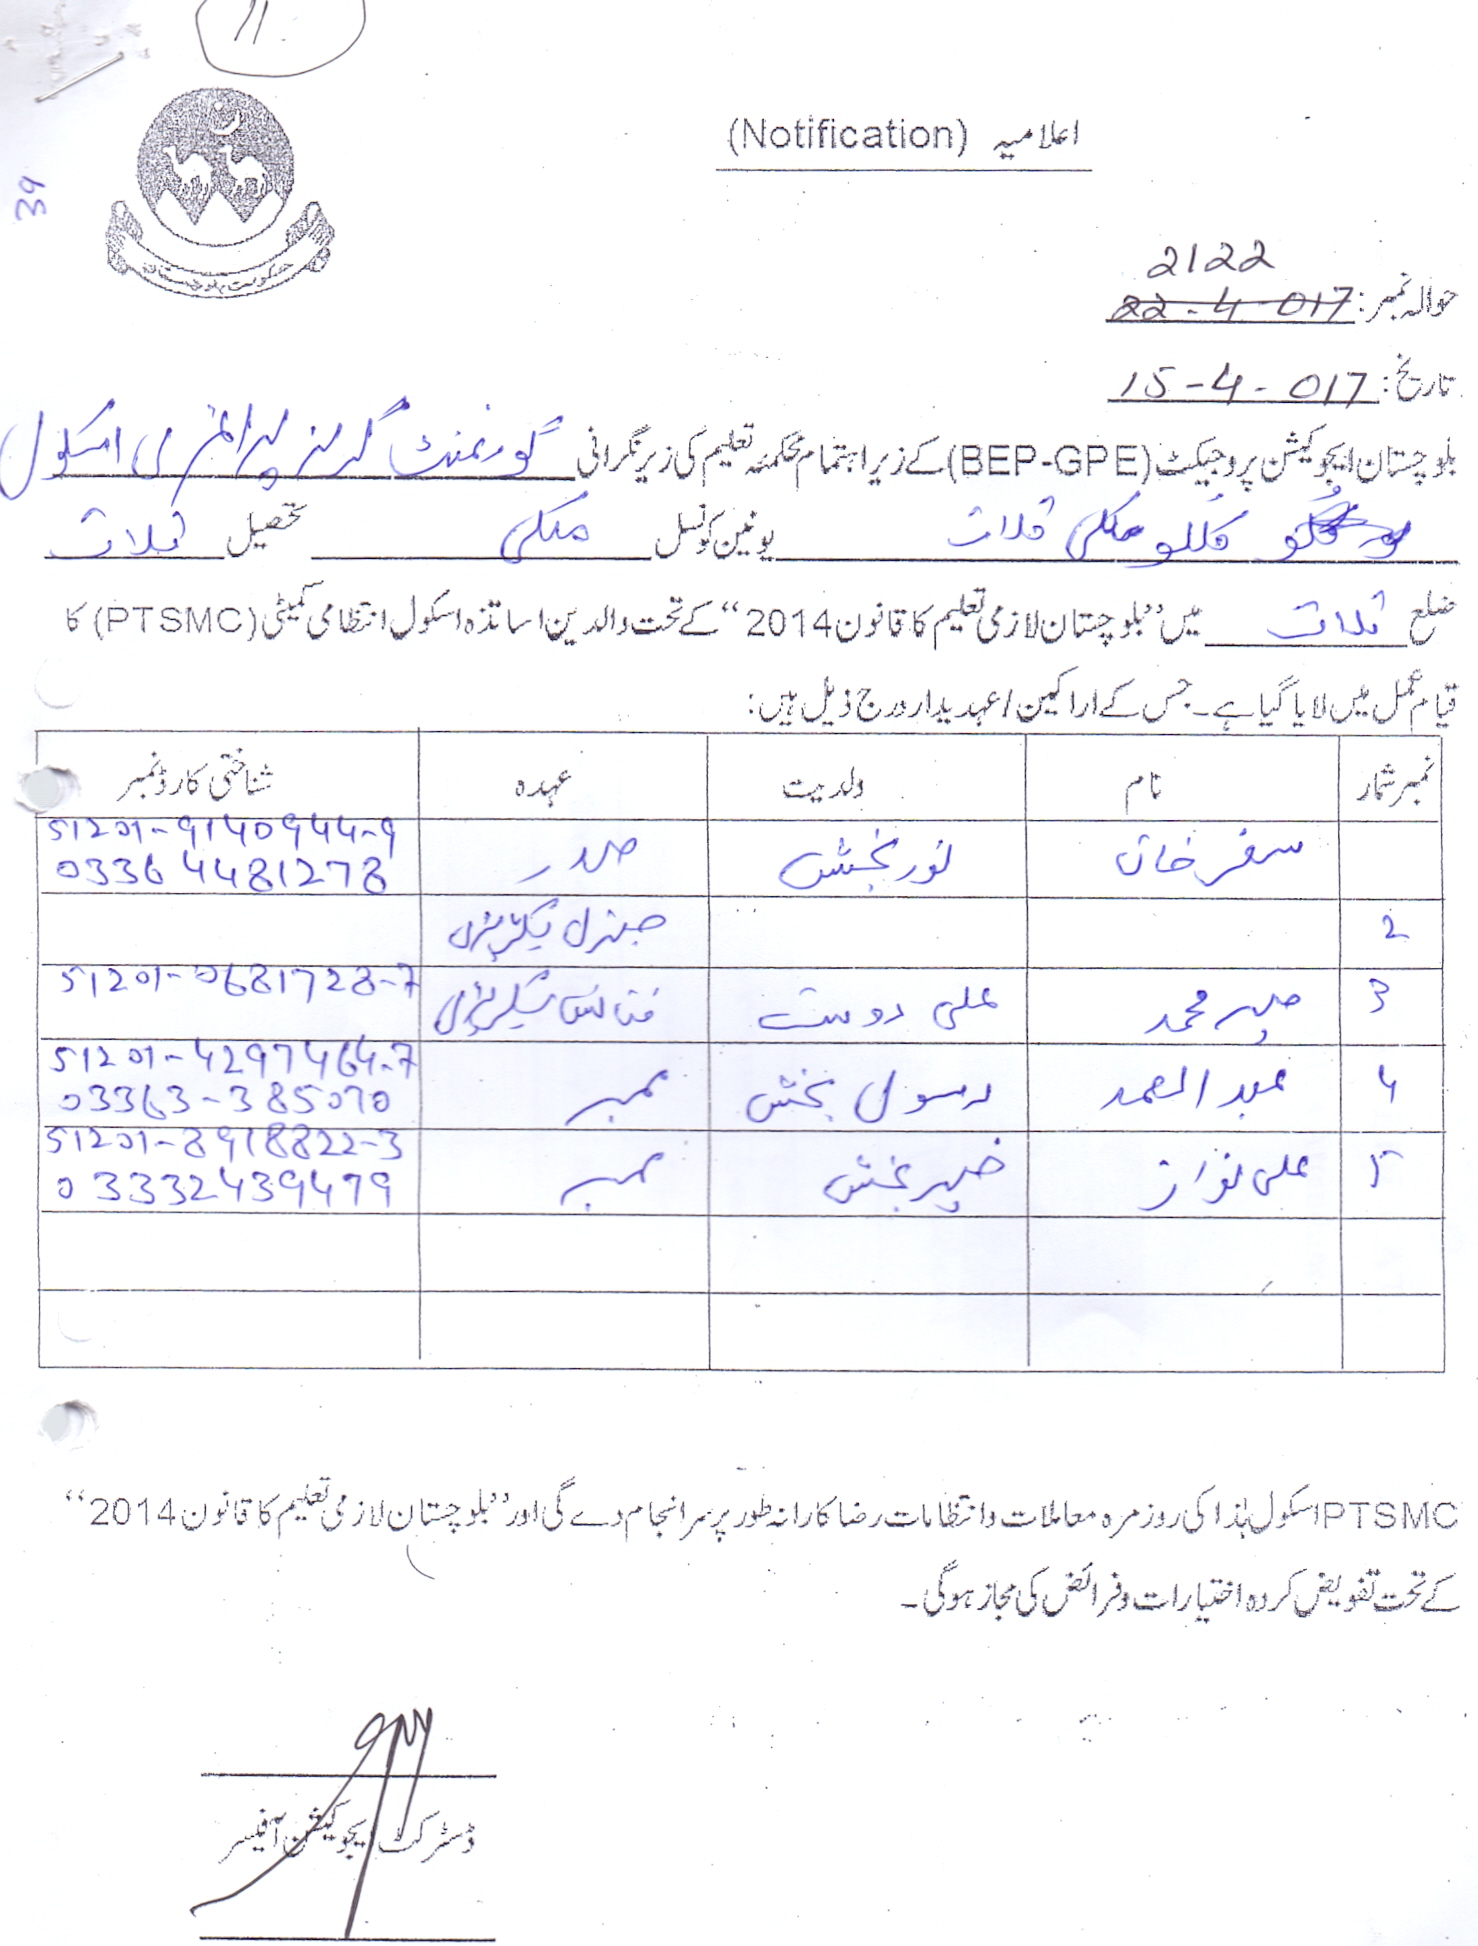 11
39
حکومت بلوچستان
اعلامیہ (Notification)
2122
حوالہ نمبر: 22-4-017
تاریخ: 15-4-017
بلوچستان ایجوکیشن پروجیکٹ (BEP-GPE) کے زیر اہتمام محکمہ تعلیم کی زیر نگرانی گورنمنٹ گرلز پرائمری اسکول
کللو ملکی قلات یونین کونسل ملکی تحصیل قلات
ضلع قلات میں ”بلوچستان لازمی تعلیم کا قانون 2014“ کے تحت والدین اساتذہ اسکول انتظامی کمیٹی (PTSMC) کا
قیام عمل میں لایا گیا ہے۔ جس کے اراکین / عہدیدار درج ذیل ہیں:
نمبر شمار نام ولدیت عہدہ شناختی کارڈ نمبر
سفر خان نور بخش صدر 51201-9140944-9
03364481278
2 جنرل سیکریٹری
3 میر محمد علی دوست فنانس سیکریٹری 51201-0681728-7
4 عبدالصمد رسول بخش ممبر 51201-4297464-7
03363-385070
5 علی نواز خیر بخش ممبر 51201-8918822-3
03332439479
PTSMC اسکول ہذا کی روزمرہ معاملات و انتظامات رضا کارانہ طور پر سرانجام دے گی اور ”بلوچستان لازمی تعلیم کا قانون 2014“
کے تحت تفویض کردہ اختیارات و فرائض کی مجاز ہوگی۔
ڈسٹرکٹ ایجوکیشن آفیسر